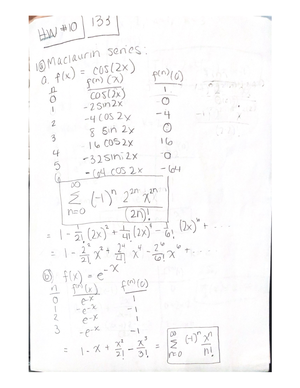 HW #10 | 133
1@ Maclaurin series:
a. f(x) = cos(2x)
n f⁽ⁿ⁾(x) f⁽ⁿ⁾(0)
0 cos(2x) 1
1 -2sin2x 0
2 -4cos2x -4
3 8 sin 2x 0
4 16 cos2x 16
5 -32sin2x 0
6 -64 cos2x -64
∞ Σ n=0 (-1)ⁿ 2²ⁿ x²ⁿ / (2n)!
= 1 - 1/2! (2x)² + 1/4! (2x)⁴ - 1/6! (2x)⁶ + ....
= 1 - 2²/2! x² + 2⁴/4! x⁴ - 2⁶/6! x⁶ + ....
ⓑ f(x) = e⁻ˣ
n f⁽ⁿ⁾(x) f⁽ⁿ⁾(0)
0 e⁻ˣ 1
1 -e⁻ˣ -1
2 e⁻ˣ 1
3 -e⁻ˣ -1
= 1 - x + x²/2! - x³/3! = ∞ Σ n=0 (-1)ⁿ xⁿ / n!